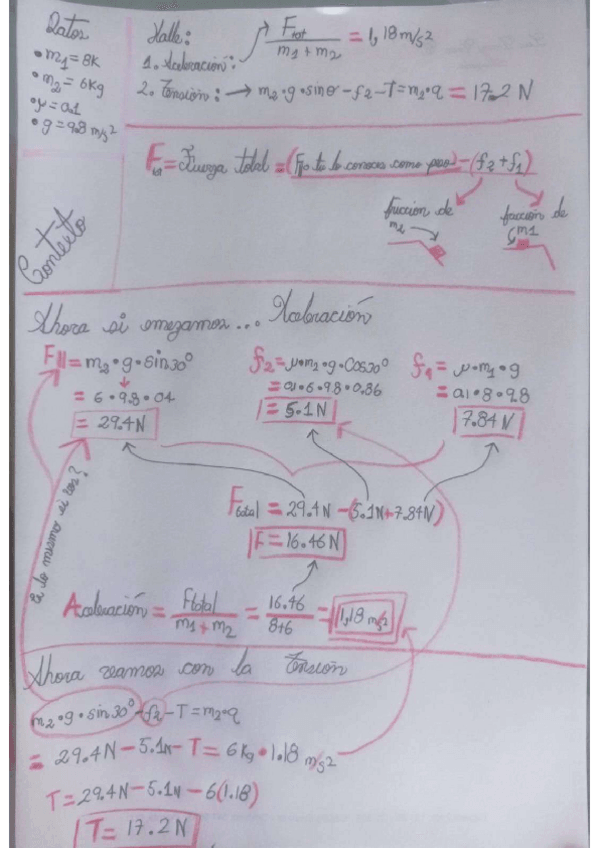 Datos
• m₁ = 8K
• m₂ = 6Kg
• μ = 0.1
• g = 9.8 m/s²
Halle:
1. Aceleración: → Ftot / m₁ + m₂ = 1,18 m/s²
2. Tensión: → m₂ • g • sinθ - f₂ - T = m₁ • a = 17.2 N
Contexto
Ftot = Fuerza total = (Fijo tu lo conoces como peso) - (f₂ + f₁)
friccion de m₂
friccion de m1
Ahora si empezamos... Aceleración
F|| = m₂ • g • Sin30°
= 6 • 9.8 • 04
= 29.4 N
f₂ = μ • m₂ • g • Cos30°
= 01 • 6 • 9.8 • 0.86
= 5.1N
f₁ = μ • m₁ • g
= 01 • 8 • 9.8
7.84 N
Ftotal = 29.4 N - (5.1N + 7.84N)
F = 16.46 N
Aceleración = Ftotal / m₁ + m₂ = 16.46 / 8+6 = 1,18 m/s²
Ahora veamos con la Tensión
m₂ • g • sin30° - f₂ - T = m₂ • a
= 29.4 N - 5.1N - T = 6 Kg • 1.18 m/s²
T = 29.4N - 5.1N - 6(1.18)
T = 17.2 N